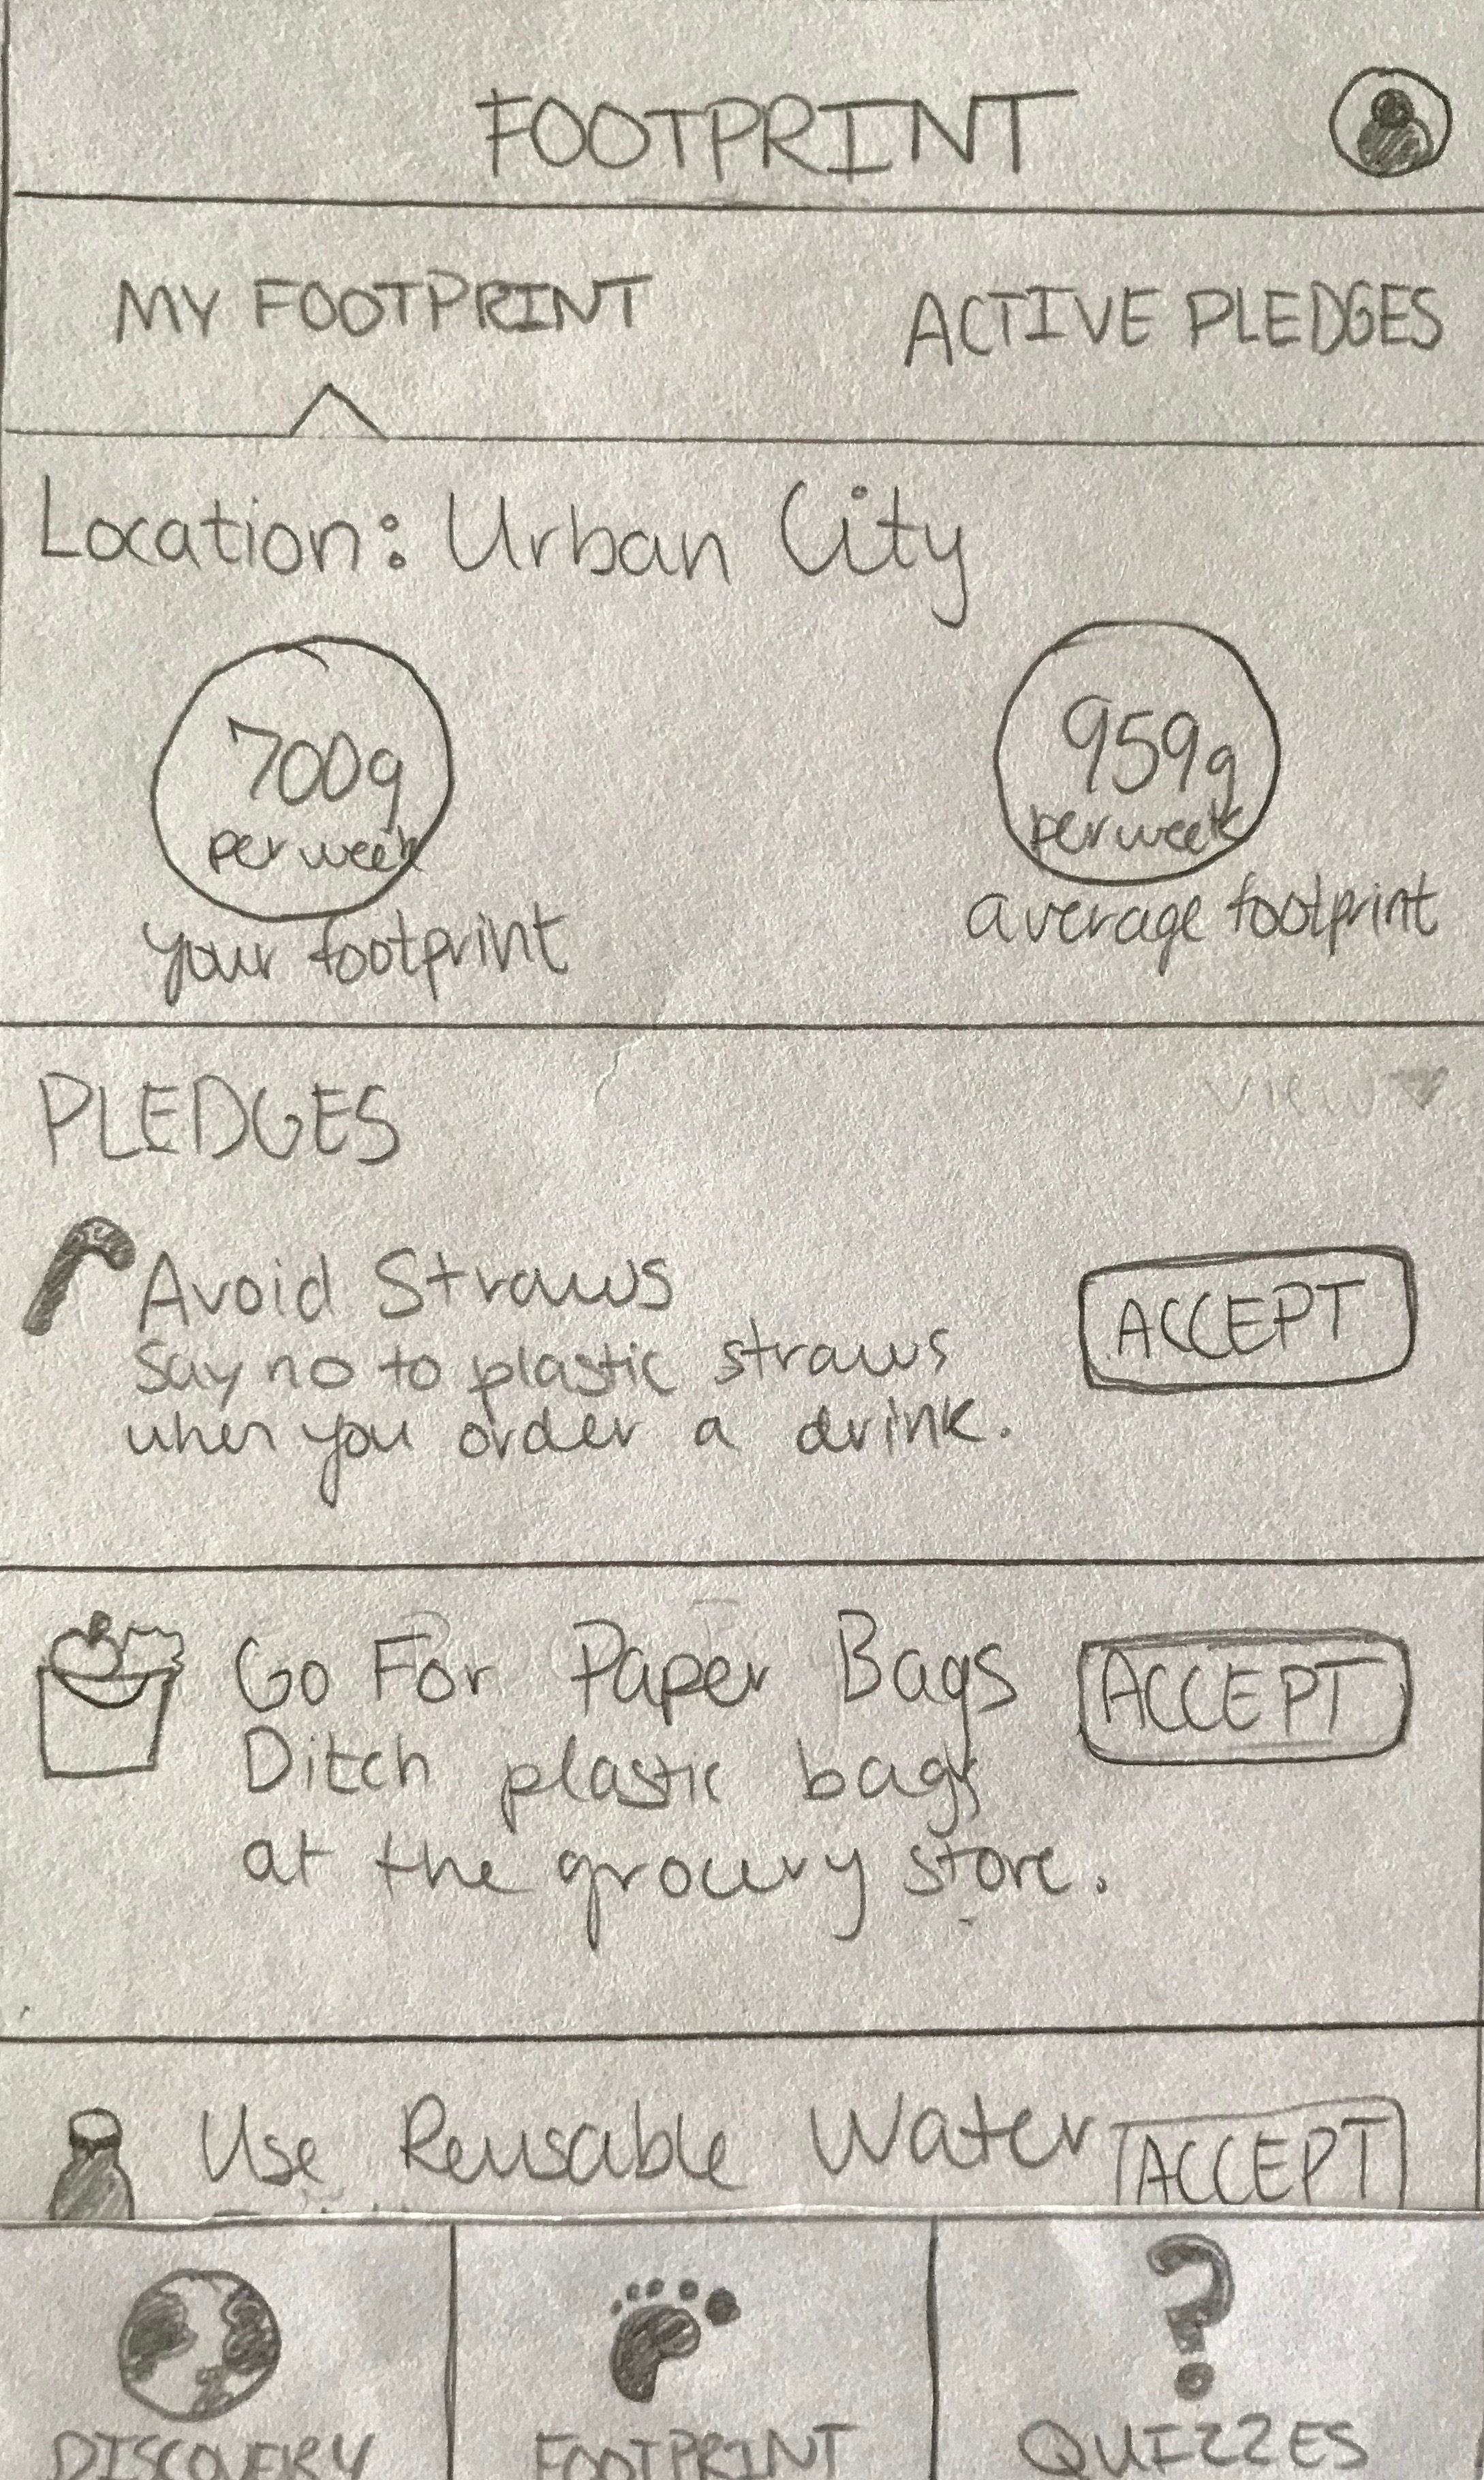 FOOTPRINT
MY FOOTPRINT ACTIVE PLEDGES
Location: Urban City
700g 959g
per week per week
your footprint average footprint
PLEDGES VIEW
Avoid Straws ACCEPT
Say no to plastic straws
when you order a drink.
Go For Paper Bags ACCEPT
Ditch plastic bags
at the grocery store.
Use Reusable Water ACCEPT
DISCOVERY FOOTPRINT QUIZZES